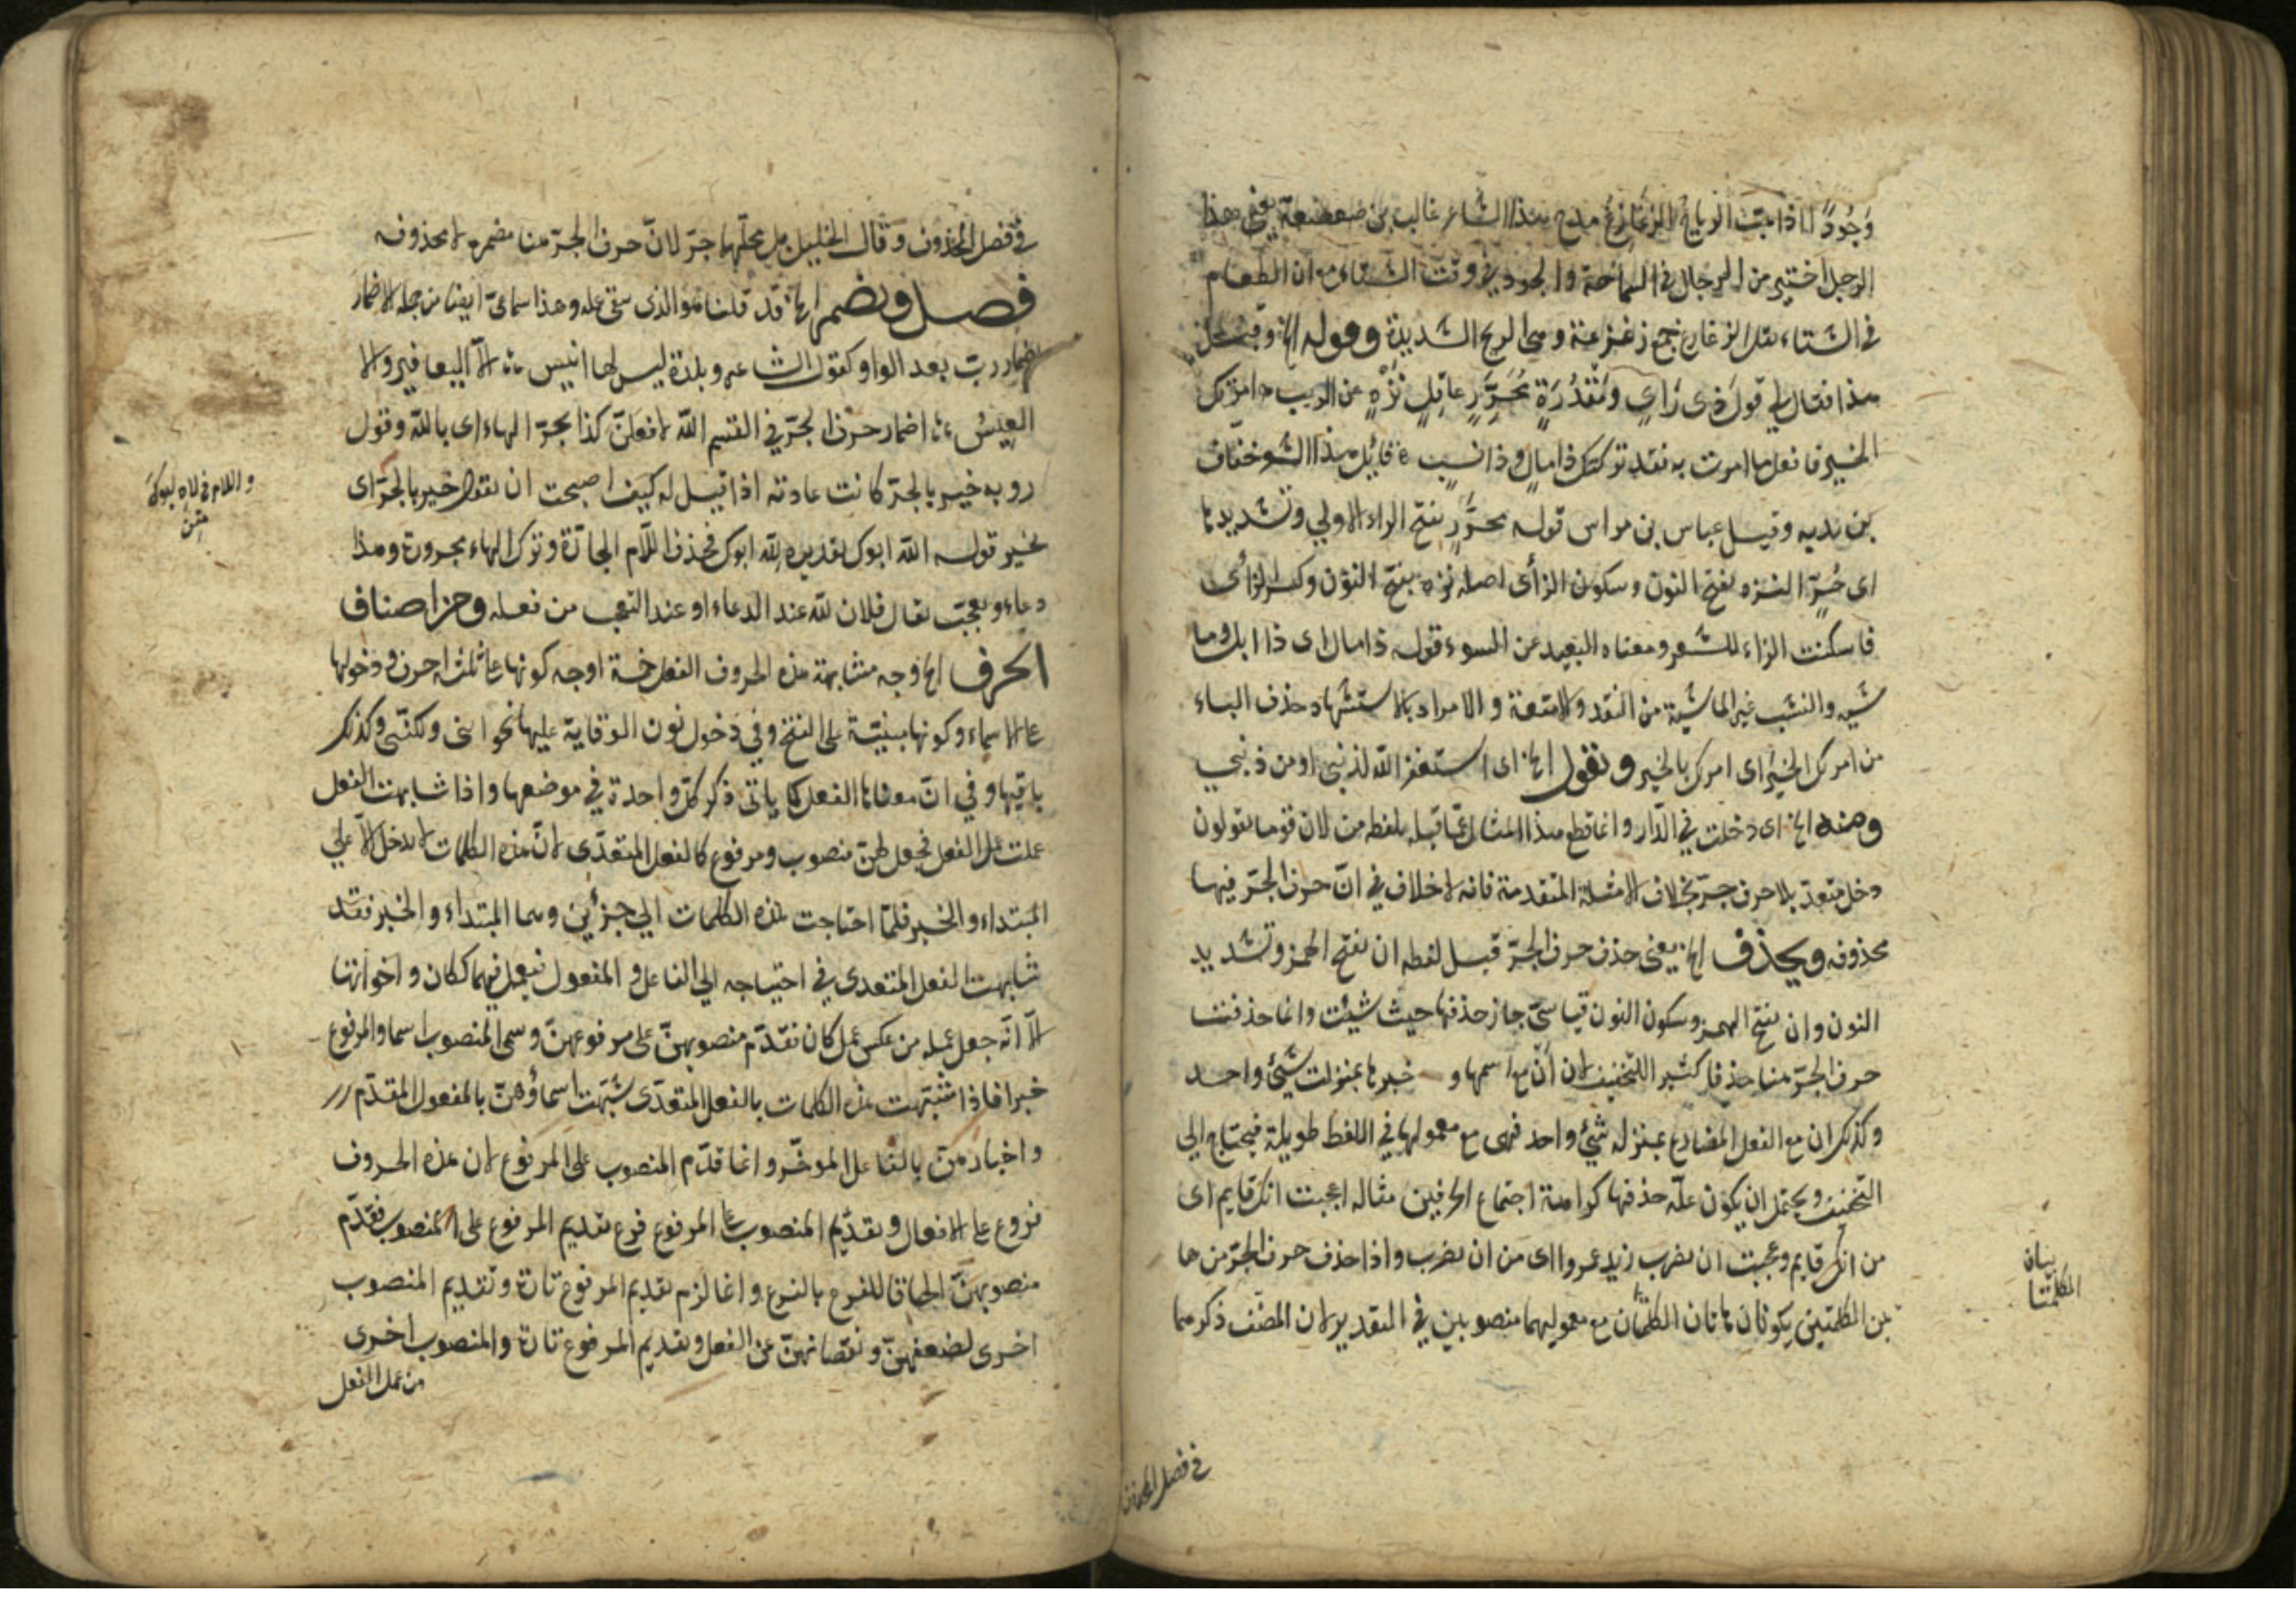 وَجُودًا اذا هبّت الرياح الزعازع مدح بهذا الشاعر غالب بن صعصعة يعني هذا
الرجل اختير من الرجال في السماحة والجود في وقت الشتاء مع ان الطعام
في الشتاء يقل الزعازع جمع زعزعة وهي الريح الشديدة وقوله الخ وقبل
هذا فقال لي قول ذي رَايٍ ومَقْدُرَةٍ مُحَرَّرٍ عاقِلٍ نَزْهٍ عن الريب امرتك
الخير فافعل ما امرت به فقد تركتك ذا مالٍ وذا نسبٍ قائل هذا الشعر خفاف
بن ندبه وقيل عباس بن مرداس قوله محرَّرٍ بفتح الراء الاولي وتشديدها
اي حُرٍّ النزه بفتح النون وسكون الزاى اصله نزه بفتح النون وكسر الزاى
فاسكنت الزاء للشعر ومعناه البعيد عن السوء قوله ذا مال اى ذا ابل وما
شيه والنشب غير الماشية من النقد والامتعة والمراد بالاستشهاد حذف الباء
من امرتك الخير اى امرتك بالخير وتقول الخ اى استغفر الله لذنبي او من ذنبي
ومنه الخ اى دخلت في الدّار وانما قطع هذا المثال عمّا قبله بلفظه من لان قوما يقولون
دخل متعدّ بلا حرف جرّ بخلاف الامثلة المتقدمة فانه لا خلاف في انّ حرف الجرّ فيها
محذوفه ويحذف الخ يعني حذف حرف الجرّ قبل لفظه ان بفتح الهمز وتشديد
النون وان بفتح الهمز وسكون النون قياسيّ جاز حذفها حيث شيئت وانما حذفت
حرف الجرّ منها حذفا كثيرا للتخفيف لان أنّ مع اسمها و خبرها بمنزلت شئ واحد
وكذلك ان مع الفعل المضارع بمنزله شئ واحد فهى مع معمولها في اللفظ طويلة فيحتاج الي
التخفيف ويحتمل ان يكون علّه حذفها كراهة اجتماع الحرفين مثاله اعجبت انك قايم اى
من انك قايم وعجبت ان يضرب زيد عمروا اى من ان يضرب واذا حذف حرف الجرّ من ها
تين الكلمتين يكونان هاتان الكلمتان مع معموليهما منصوبين في التقدير لان المصنّف ذكرهما
بيان
الكلمتا
في فصل المحذوف
في فصل المحذوف وقال الخليل بل محلّهما جرّ لانّ حرف الجرّ منها مضمره لا محذوفه
فصل وتضمر الخ قد قلنا هو الذى بقى عمله وهذا سماعيّ ايضا من جمله الاضمار
اضمار ربّ بعد الواو كقول الشاعر وبلدة ليس لها انيس الاّ اليعافير والا
العيسُ اضمار حرف الجرّ في القسم اللّه لافعلنّ كذا بجرّ الهاء اى باللّه وقول
روبه خيرٍ بالجرّ كانت عادته اذا قيل له كيف اصبحت ان يقول خيرٍ بالجرّ اى
بخير قوله اللّه ابوك تقديره للّه ابوك فحذف اللّام الجارّة وترك الهاء مجرورة وهذا
دعاء وتعجّب يقال فلان للّه عند الدعاء او عند التعجب من فعله وحزا صناف
الحرف الخ وجه مشابهة هذه الحروف الفعل خمسة اوجه كونها علي ثلثه احرف ودخولها
علي الاسماء وكونها مبنيّة على الفتح وفي دخول نون الوقاية عليها نحو اننى ولكنّنى وكذلك
باقيها وفي انّ معناها الفعل كما ياتى ذكر كلّ واحدة في موضعها واذا شابهت الفعل
عملت عمل الفعل فجعل لهنّ منصوب ومرفوع كالفعل المتعدّى لانّ هذه الكلمات لا يدخل الاّ على
المبتداء والخبر فلمّا احتاجت هذه الكلمات الي جزئين وهما المبتداء والخبر فقد
شابهت الفعل المتعدى في احتياجه الي الفاعل والمفعول فيعمل فيهما ككان واخواتها
الاّ انّه جعل عمله من عكس عمل كان تقدّم منصوبهنّ على مرفوعهنّ وسمى المنصوب اسما والمرفوع
خبرا فاذا شبّهت هذه الكلمات بالفعل المتعدّى شبّهت اسماؤهنّ بالمفعول المقدّم
واخبارهنّ بالفاعل الموخّر وانما قدّم المنصوب على المرفوع لان هذه الحروف
فروع علي الافعال وتقديم المنصوب علي المرفوع فرع تقديم المرفوع على المنصوب فقدّم
منصوبهنّ الحاقا للفرع بالفرع وانما لزم تقديم المرفوع تارة وتقديم المنصوب
اخرى لضعفهنّ ونقصانهنّ عن الفعل وتقديم المرفوع تارة والمنصوب اخرى
من عمل الفعل
واللام في لاه ابوك
متن